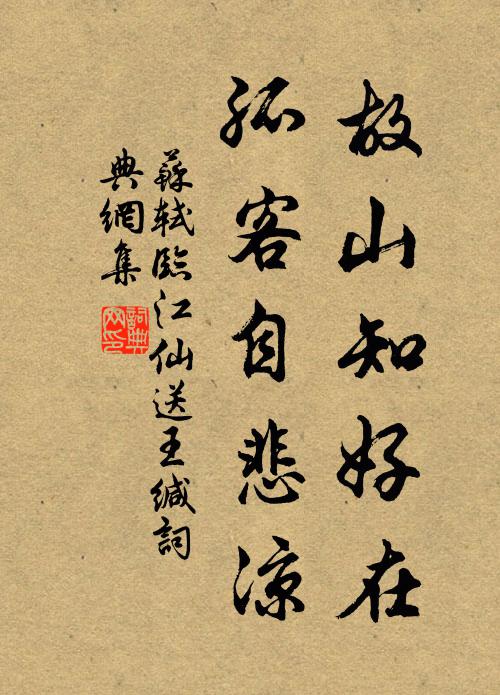 故山知好在
孤客自悲涼
蘇軾臨江仙送王緘詞
典網集
詞典
网印